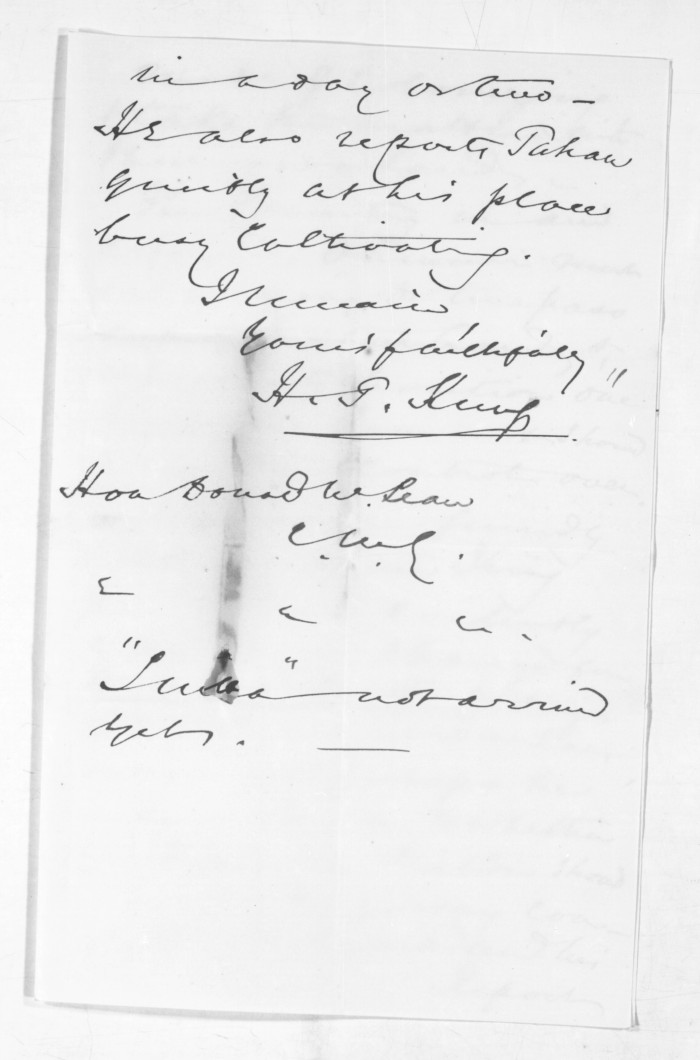 in a day or two —
He also reports Tahau
quietly at his place
busy Cultivating.
I remain
Yours faithfully
H. T. Kenny
Hon Donald McLean
C.M.G.
"Luna" not arrived
yet.